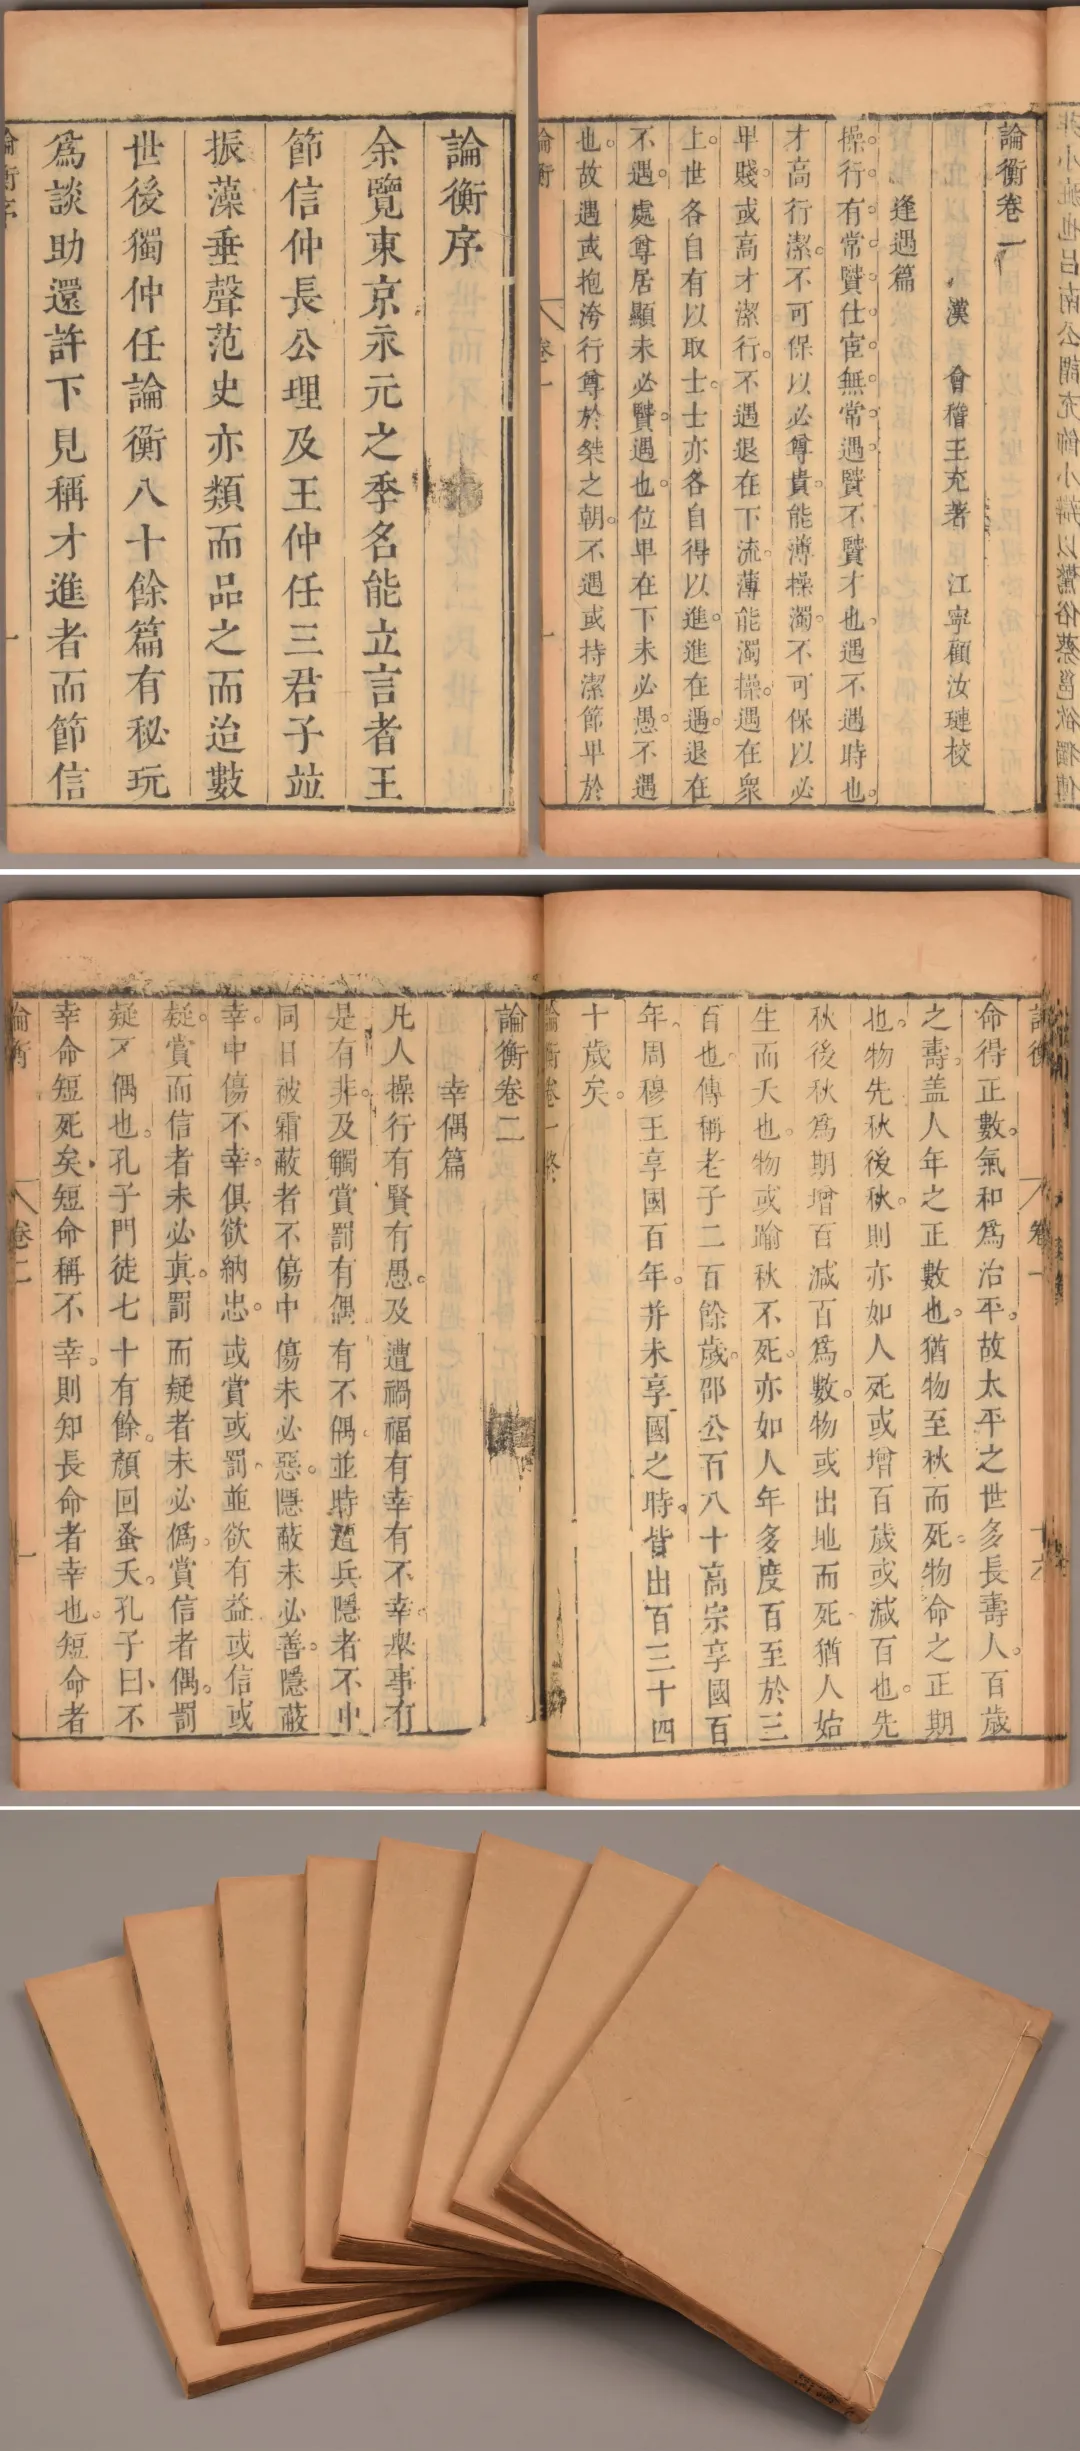 論衡序
余覽東京永元之季名能立言者王
節信仲長公理及王仲任三君子竝
振藻垂聲范史亦類而品之而迨數
世後獨仲任論衡八十餘篇有秘玩
爲談助還許下見稱才進者而節信
論衡序
一
論衡卷一
漢 會稽王充著 江寧顧汝璉校
逢遇篇
操行有常賢仕宦無常遇賢不賢才也遇不遇時也
才高行潔不可保以必尊貴能薄操濁不可保以必
卑賤或高才潔行不遇退在下流薄能濁操遇在衆
上世各自有以取士士亦各自得以進進在遇退在
不遇處尊居顯未必賢遇也位卑在下未必愚不遇
也故遇或抱洿行尊於桀之朝不遇或持潔節卑於
論衡
卷一
一
論衡
卷一
十六
命得正數氣和爲治平故太平之世多長壽人百歲
之壽盖人年之正數也猶物至秋而死物命之正期
也物先秋後秋則亦如人死或增百歲或減百也先
秋後秋爲期增百減百爲數物或出地而死猶人始
生而夭也物或踰秋不死亦如人年多度百至於三
百也傳稱老子二百餘歲邵公百八十高宗享國百
年周穆王享國百年并未享國之時皆出百三十四
十歲矣
論衡卷一終
論衡卷二
幸偶篇
凡人操行有賢有愚及遭禍福有幸有不幸舉事有
是有非及觸賞罰有偶有不偶並時遭兵隱者不中
同日被霜蔽者不傷中傷未必惡隱蔽未必善隱蔽
幸中傷不幸俱欲納忠或賞或罰並欲有益或信或
疑賞而信者未必真罰而疑者未必僞賞信者偶罰
疑不偶也孔子門徒七十有餘顏回蚤夭孔子曰不
幸命短死矣短命稱不幸則知長命者幸也短命者
論衡
卷二
一